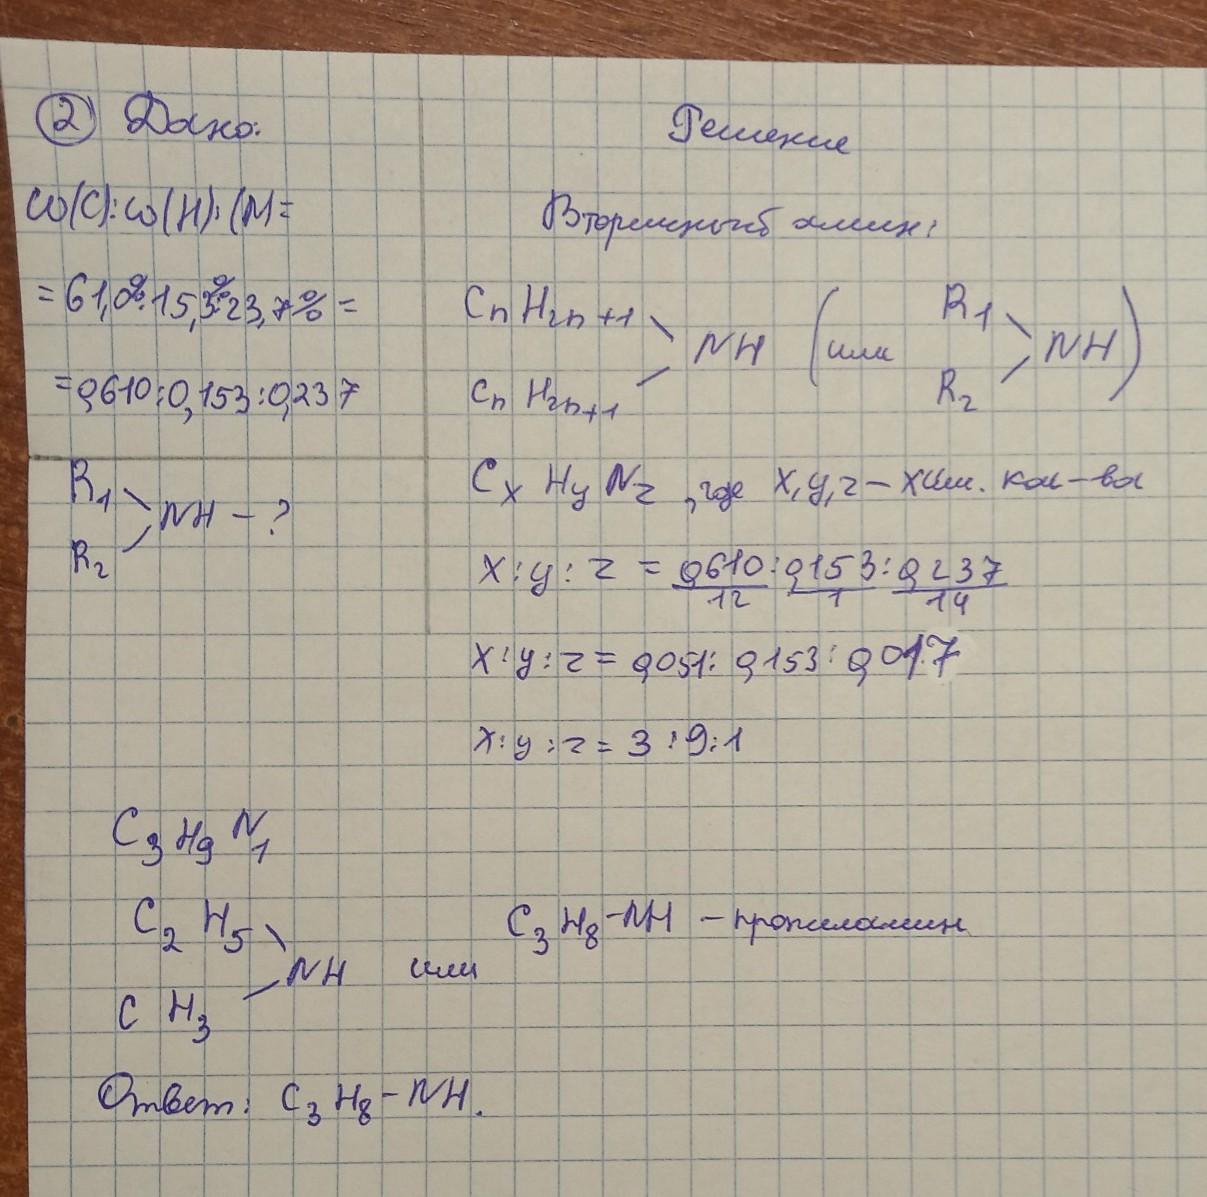 ② Дано:
Решение
ω(C):ω(H):(N=
= 61,0%:15,3%:23,7% =
= 0,610:0,153:0,237
R₁
NH - ?
R₂
Вторичный амин:
CnH2n+1
NH
CnH2n+1
(или
R₁
NH)
R₂
CxHyNz, где x,y,z – хим. кол-ва
x:y:z = 0,610/12 : 0,153/1 : 0,237/14
x:y:z = 0,051: 0,153: 0,017
x:y:z = 3:9:1
C₃H₉N₁
C₂H₅
NH или
CH₃
C₃H₈-NH – пропиламин
Ответ: C₃H₈-NH.